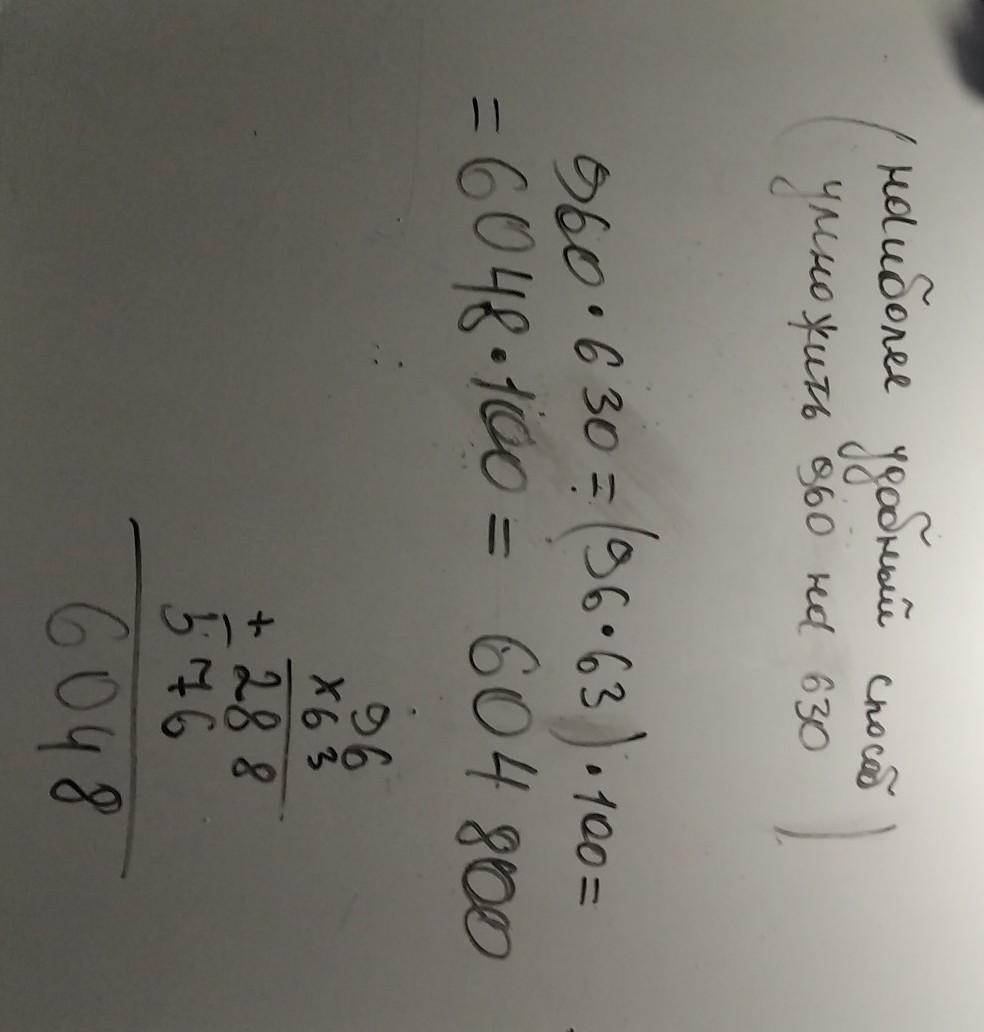 (наиболее удобный способ
умножить 960 на 630)
960 · 630 = (96 · 63) · 100 =
= 6048 · 100 = 604 800
96
×63
+ 288
576
6048